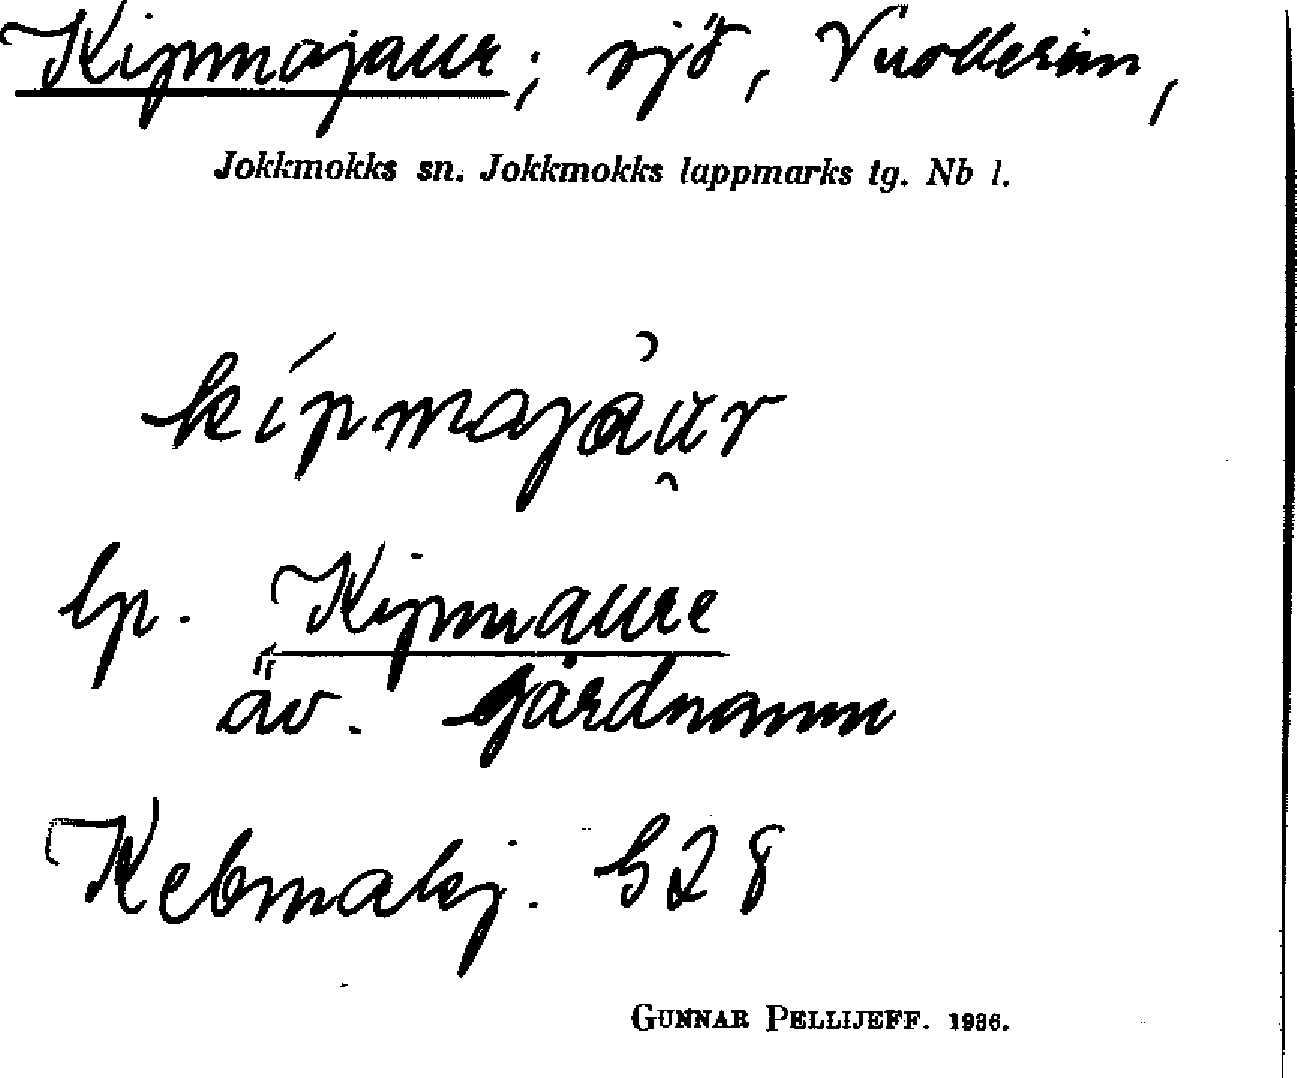 Kipmajaur; sjö, Vuollerim,
Jokkmokks sn. Jokkmokks lappmarks tg. Nb l.
kípmajàur
lp. Kipmaure
äv. gårdnamn
Kebmalej. G28
GUNNAR PELLIJEFF. 1936.